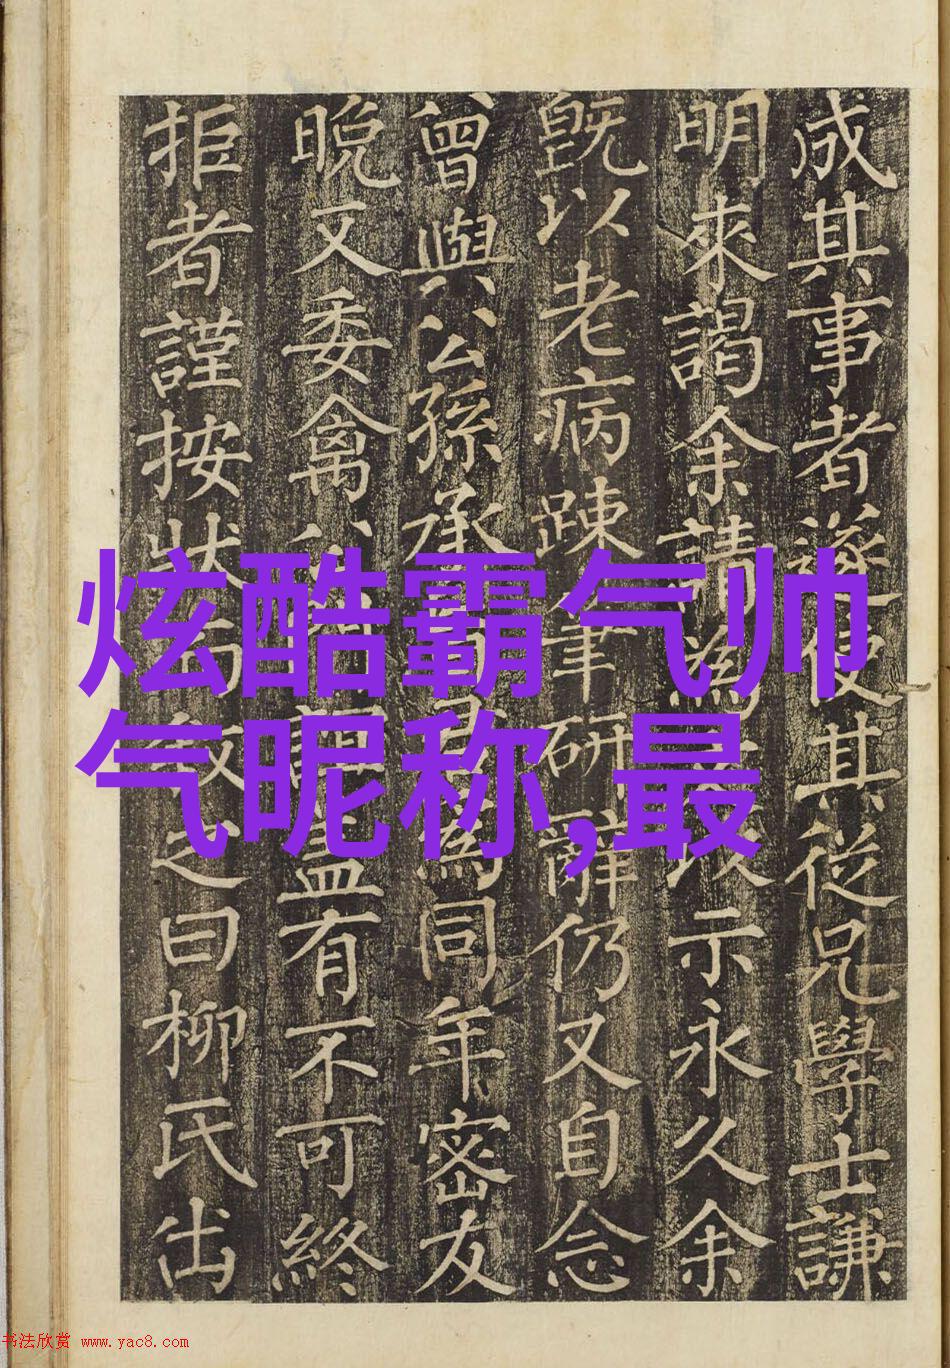 成其事者遂使其從兄學士謙
明來謁余請為以示永久余
既以老病踈筆研辭仍又自念
曾與公孫承為同年密友
晚又委禽盖有不可終
拒者謹按狀之曰柳氏出
炫酷霸气帅
气昵称,最
书法欣赏 www.yac8.com